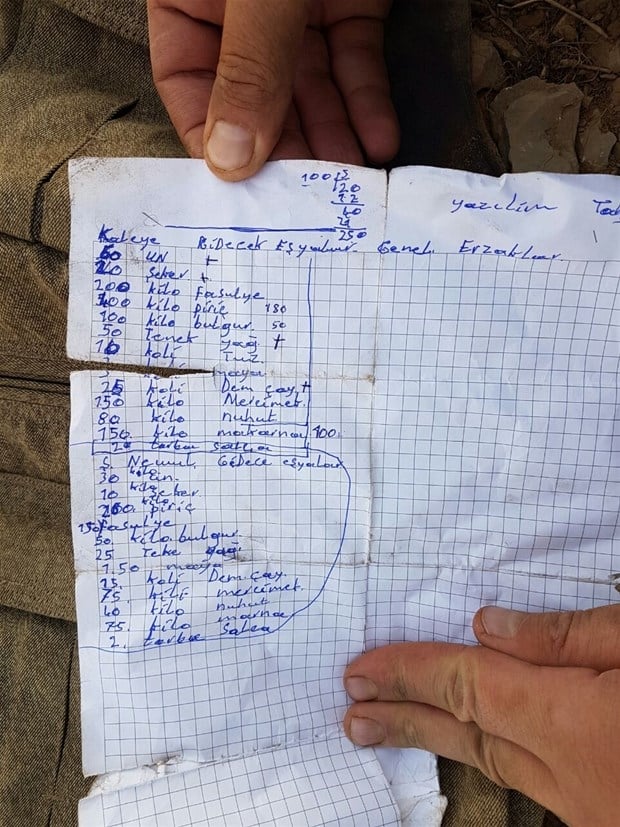 100 12
120
12
40
250
yazılım
Kaleye Gidecek Eşyalar. Genel. Erzaklar.
60 UN +
20 Şeker +
200 kilo fasulye
400 kilo piriç 180
100 kilo bulgur. 50
50 Tenek yağ +
10 koli Tuz
maya
25 koli Dem çay +
150 kilo Mercimek.
80 kilo nuhut
150. kilo makarna 100.
20 torba salça
Ş. Gidece eşyalar
30 kilo un.
10 kilo şeker.
kilo piriç
150 fasulye
50. kilo. bulgur.
25 Teke yağ
1.50 maya
koli Dem çay.
75. kilo mercimet.
40 kilo nuhut
75. kilo marna
2. torba Salca